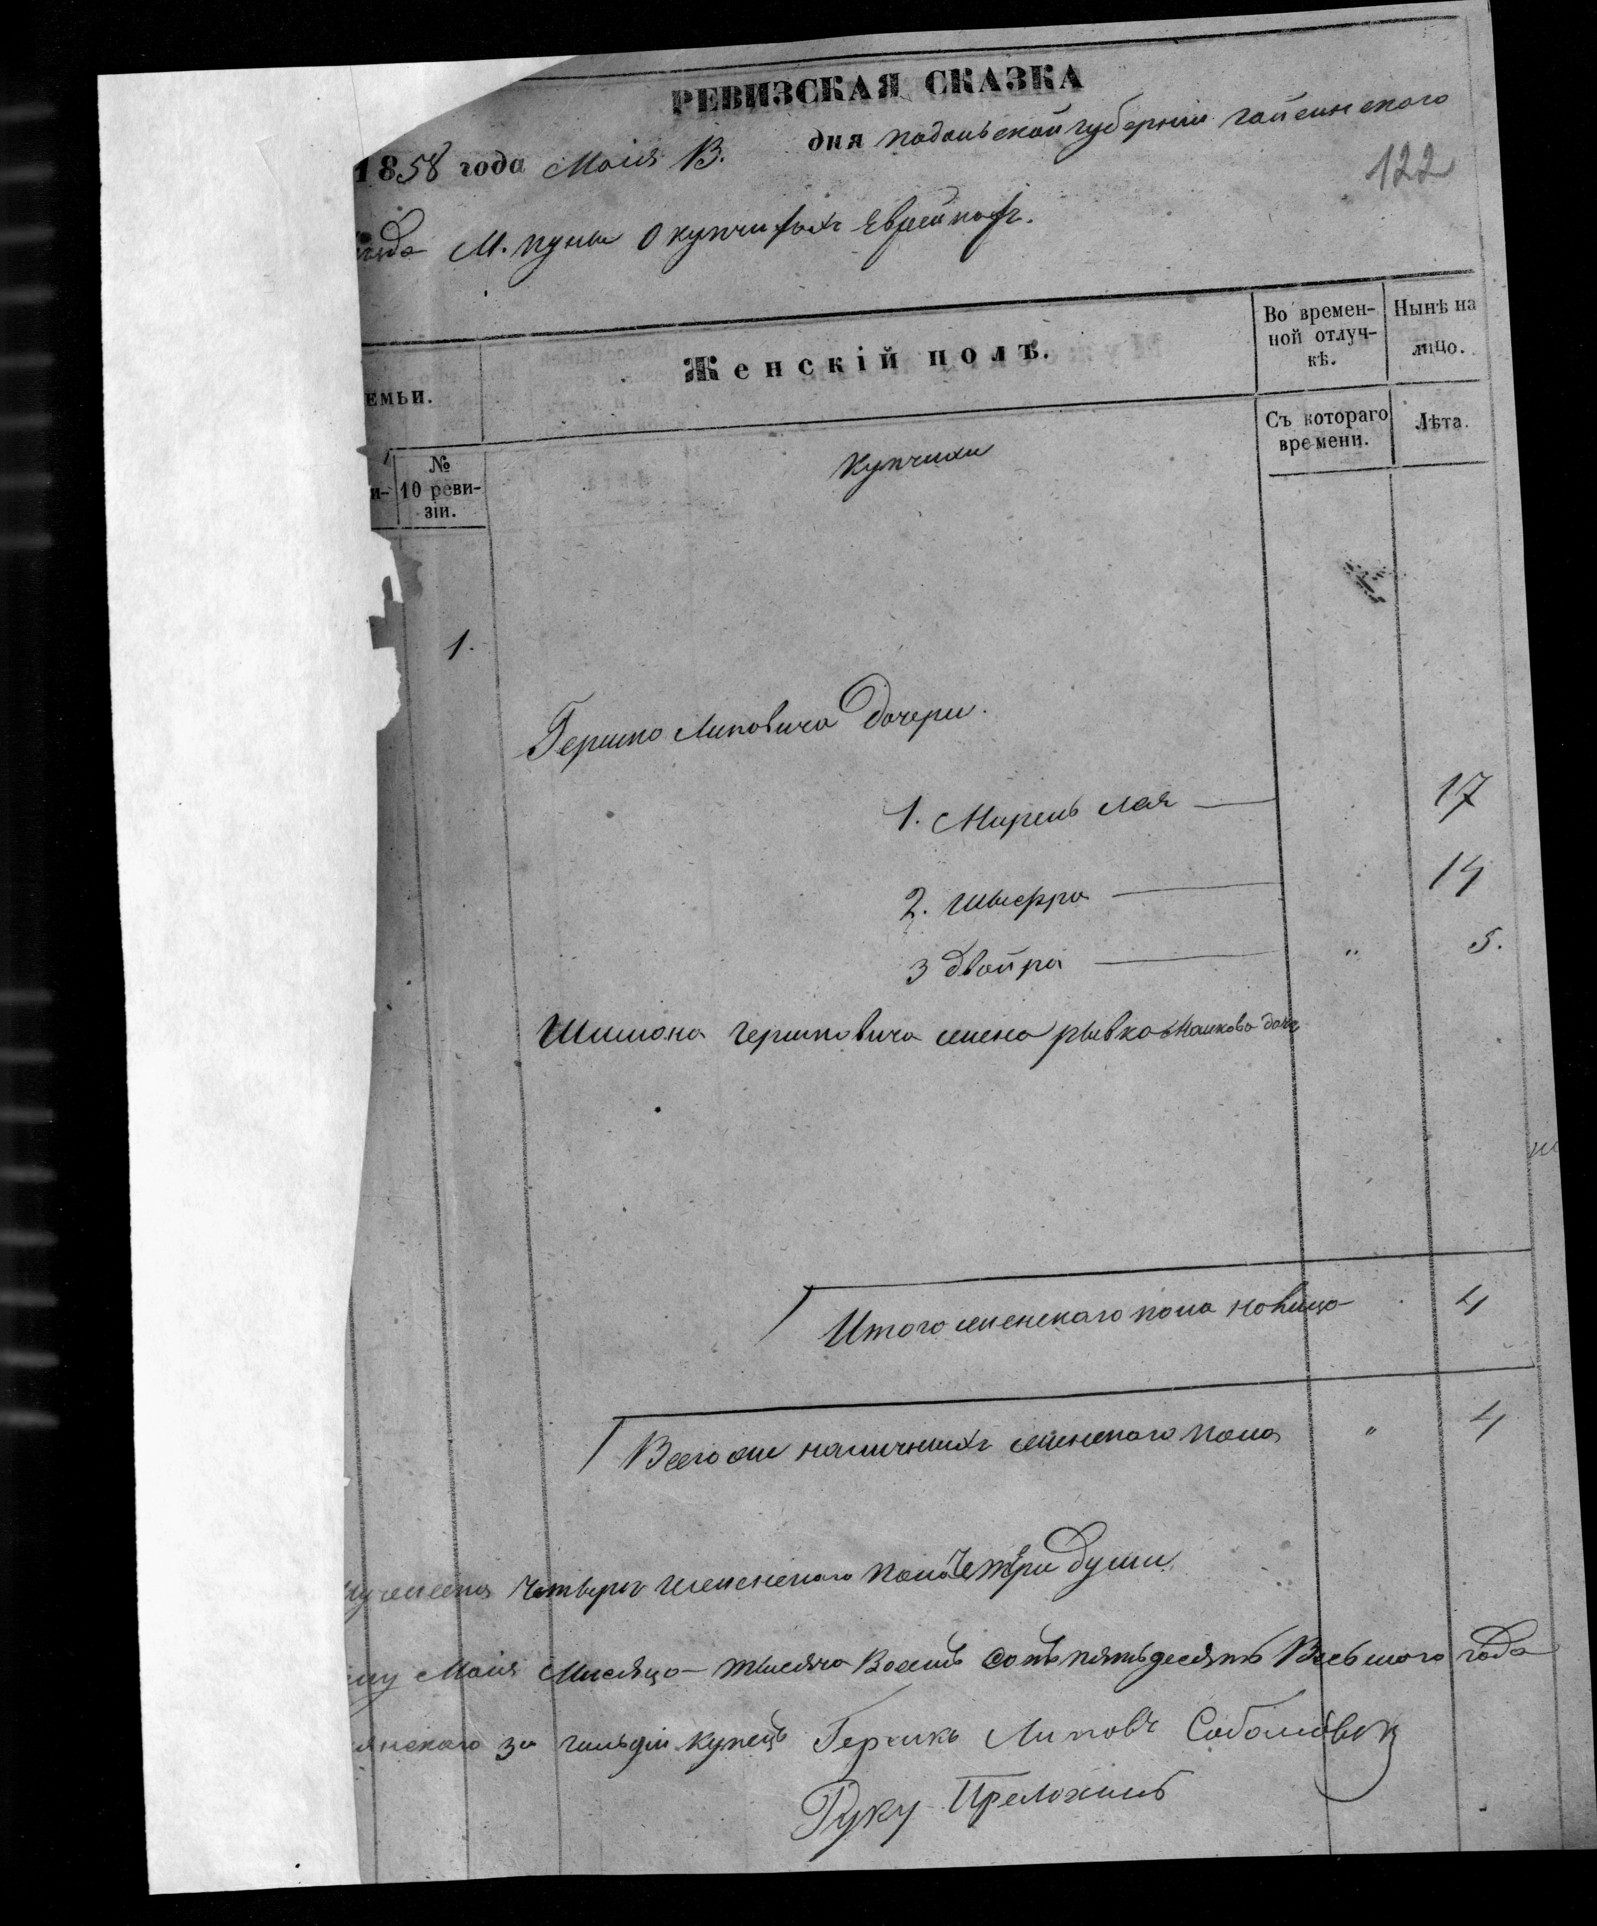 РЕВИЗСКАЯ СКАЗКА
1858 года Маія 13. дня Подольской губерніи Гайсинского
122
уезда М. Куны О купчихахъ Еврейкахъ.
емьи.
Женскій полъ.
Во времен-
ной отлуч-
кѣ.
Нынѣ на
лицо.
и-
№
10 реви-
зіи.
Купчихи
Съ котораго
времени.
Лѣта.
1.
Гершко Липовича Дочери.
1. Мирель Лая 17
2. Шыфра 14
3 Двойра " 5.
Шимона Гершковича жена рывка дочь
Итого женского пола налицо 4
Всего наличныхъ женского пола " 4
Четверо женского пола Четыри души
Маія Месяца тысяча Восемь Сотъ пятьдесятъ Восьмого года
3й гильдіи купецъ Гершко Липовъ Соболівок
Руку Преложилъ